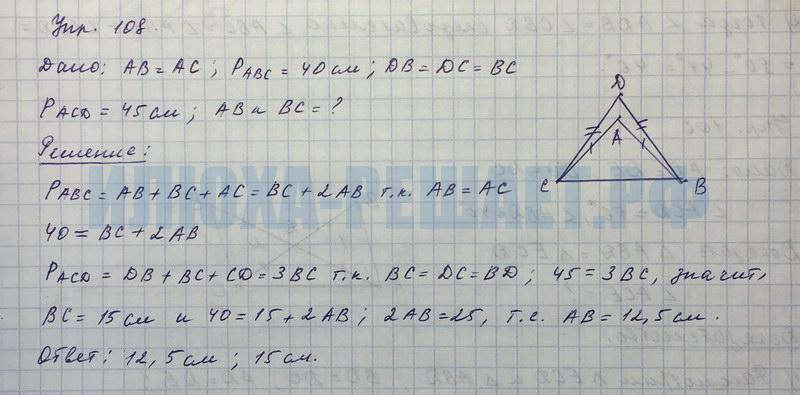 Упр. 108.
Дано: AB = AC ; P ABC = 40 см ; DB = DC = BC
P ACD = 45 см ; AB и BC = ?
Решение:
P ABC = AB + BC + AC = BC + 2AB т.к. AB = AC
40 = BC + 2AB
P ACD = DB + BC + CD = 3BC т.к. BC = DC = BD ; 45 = 3BC, значит,
BC = 15 см и 40 = 15 + 2AB ; 2AB = 25, т.е. AB = 12,5 см.
Ответ: 12,5 см ; 15 см.
D
A
C
B
ИЛЮХА-РЕШАЕТ.РФ